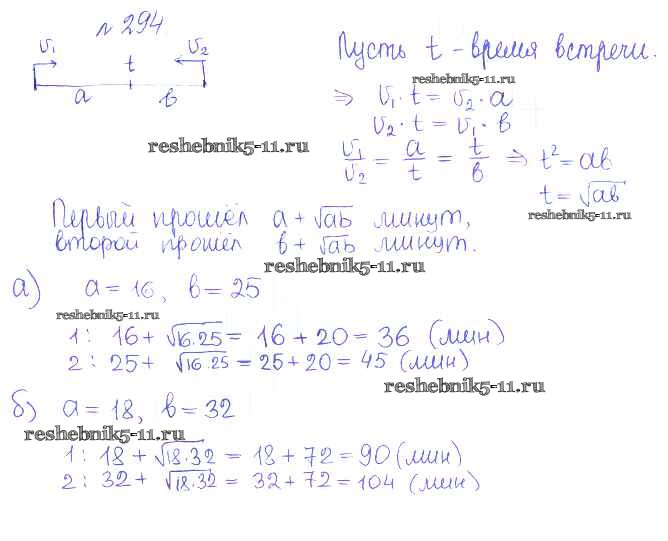 № 294
v₁ v₂
t
a b
Пусть t - время встречи.
reshebnik5-11.ru
⇒ v₁ · t = v₂ · a
v₂ · t = v₁ · b
reshebnik5-11.ru
v₁/v₂ = a/t = t/b ⇒ t² = ab
t = √ab
reshebnik5-11.ru
Первый прошёл a + √ab минут,
второй прошёл b + √ab минут.
reshebnik5-11.ru
а) a = 16, b = 25
reshebnik5-11.ru
1: 16 + √16·25 = 16 + 20 = 36 (мин)
2: 25 + √16·25 = 25 + 20 = 45 (мин)
reshebnik5-11.ru
б) a = 18, b = 32
reshebnik5-11.ru
1: 18 + √18·32 = 18 + 72 = 90 (мин)
2: 32 + √18·32 = 32 + 72 = 104 (мин)